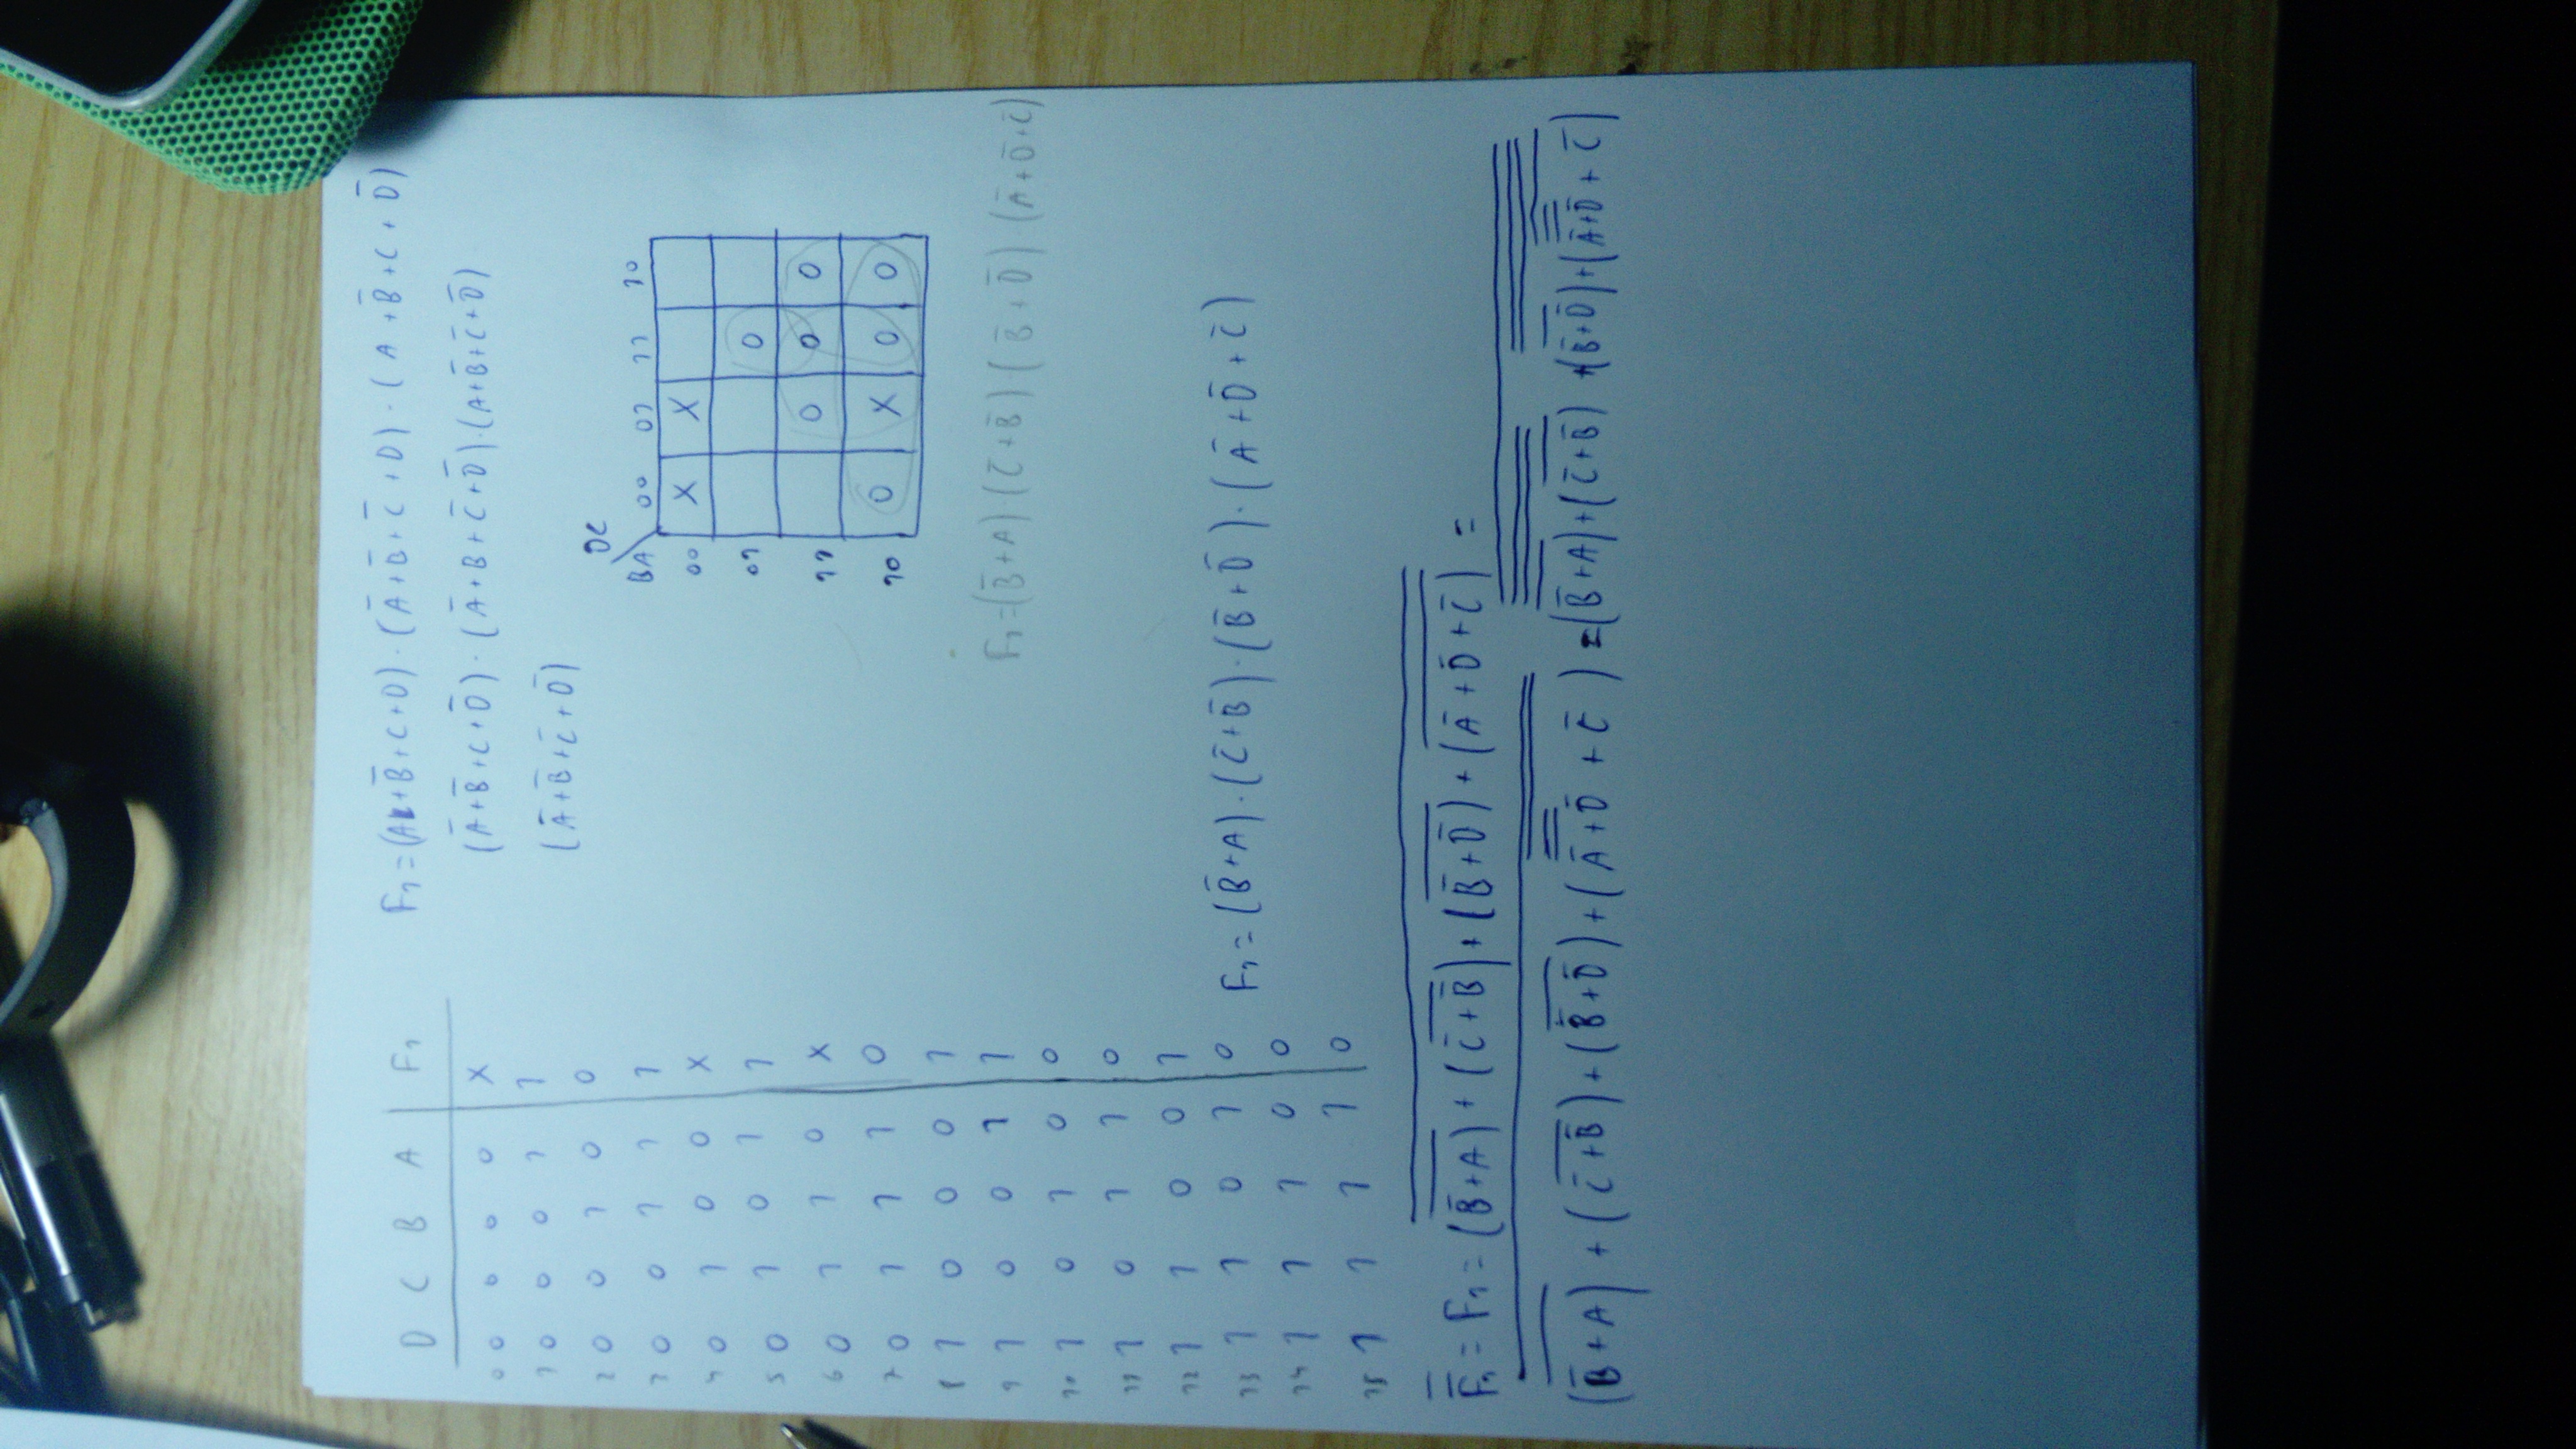 D C B A F₁
0 0 0 0 0 X
1 0 0 0 1 1
2 0 0 1 0 0
3 0 0 1 1 1
4 0 1 0 0 X
5 0 1 0 1 1
6 0 1 1 0 X
7 0 1 1 1 0
8 1 0 0 0 1
9 1 0 0 1 1
10 1 0 1 0 0
11 1 0 1 1 0
12 1 1 0 0 1
13 1 1 0 1 0
14 1 1 1 0 0
15 1 1 1 1 0
F₁ = (A + B̅ + C + D) · (A̅ + B̅ + C̅ + D) · (A + B̅ + C + D̅)
(A̅ + B̅ + C + D̅) · (A̅ + B + C̅ + D̅) · (A + B̅ + C̅ + D̅)
(A̅ + B̅ + C̅ + D̅)
DC
BA 00 01 11 10
00 X X
01 0
11 0 0 0
10 0 X 0 0
F₁ = (B̅ + A) · (C̅ + B̅) · (B̅ + D̅) · (A̅ + D̅ + C̅)
F₁ = (B̅ + A) · (C̅ + B̅) · (B̅ + D̅) · (A̅ + D̅ + C̅)
F̿₁ = F₁ = (B̅ + A) + (C̅ + B̅) + (B̅ + D̅) + (A̅ + D̅ + C̅) =
(B̅ + A) + (C̅ + B̅) + (B̅ + D̅) + (A̅ + D̅ + C̅) = (B̅ + A) + (C̅ + B̅) + (B̅ + D̅) + (A̅ + D̅ + C̅)